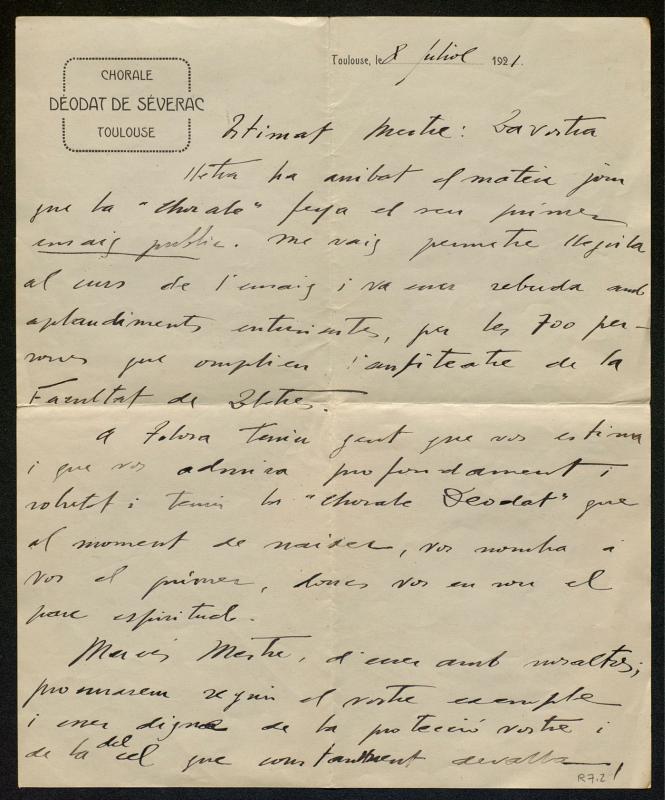 CHORALE
DÉODAT DE SÉVERAC
TOULOUSE
Toulouse, le 8 juliol 1921.
Estimat Mestre: La vostra
lletra ha arribat el mateix jorn
que la "Chorale" feya el seu primer
ensaig public. Me vaig permetre llegirla
al curs de l'ensaig i va esser rebuda amb
aplaudiments entusiastes, per les 700 per-
sones que omplien l'anfiteatre de la
Facultat de Lletres.
A Tolosa teniu gent que vos estima
i que vos admira profondament i
sobretot i teniu la "Chorale Deodat" que
al moment de naixer, vos nomba a
vos el primer, doncs vos en sou el
pare espiritual.
Mercès Mestre, d'esser amb nosaltres;
procurarem seguir el vostre exemple
i esser digne de la protecció vostre i
de la del cel que constantment devalla
R.7.2